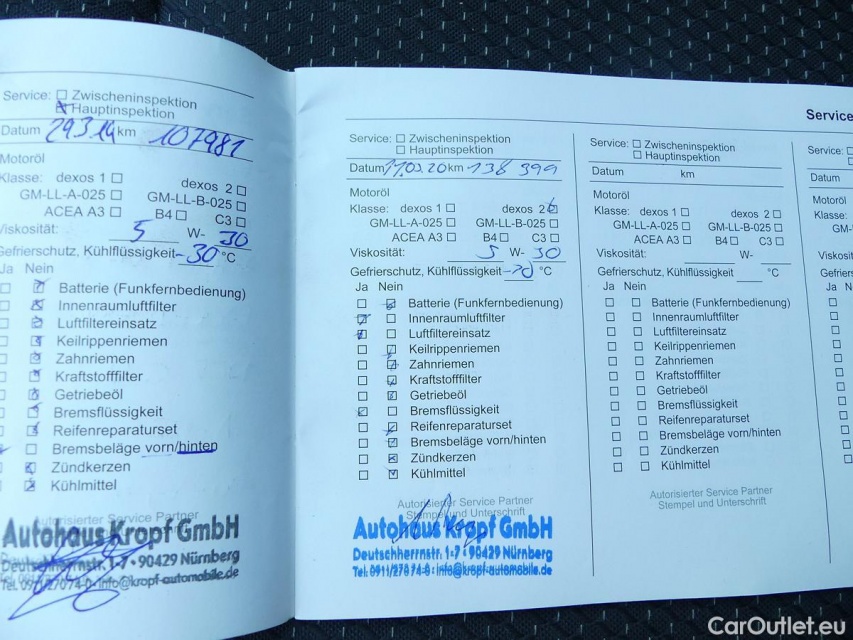 Service: Zwischeninspektion
Hauptinspektion
Datum 29.3.19 km 107981
Motoröl
Klasse: dexos 1 dexos 2
GM-LL-A-025 GM-LL-B-025
ACEA A3 B4 C3
Viskosität: 5 W- 30
Gefrierschutz, Kühlflüssigkeit -30 °C
Ja Nein
Batterie (Funkfernbedienung)
Innenraumluftfilter
Luftfiltereinsatz
Keilrippenriemen
Zahnriemen
Kraftstofffilter
Getriebeöl
Bremsflüssigkeit
Reifenreparaturset
Bremsbeläge vorn/hinten
Zündkerzen
Kühlmittel
Autorisierter Service Partner
Autohaus Kropf GmbH
Deutschherrnstr. 1-7 • 90429 Nürnberg
Tel. 0911/27074-0 • info@kropf-automobile.de
Service: Zwischeninspektion
Hauptinspektion
Datum 11.03.20 km 138 399
Motoröl
Klasse: dexos 1 dexos 2
GM-LL-A-025 GM-LL-B-025
ACEA A3 B4 C3
Viskosität: 5 W- 30
Gefrierschutz, Kühlflüssigkeit °C
Ja Nein
Batterie (Funkfernbedienung)
Innenraumluftfilter
Luftfiltereinsatz
Keilrippenriemen
Zahnriemen
Kraftstofffilter
Getriebeöl
Bremsflüssigkeit
Reifenreparaturset
Bremsbeläge vorn/hinten
Zündkerzen
Kühlmittel
Autorisierter Service Partner
Stempel und Unterschrift
Autohaus Kropf GmbH
Deutschherrnstr. 1-7 • 90429 Nürnberg
Tel. 0911/27074-0 • info@kropf-automobile.de
Service
Service: Zwischeninspektion
Hauptinspektion
Datum km
Motoröl
Klasse: dexos 1 dexos 2
GM-LL-A-025 GM-LL-B-025
ACEA A3 B4 C3
Viskosität: W-
Gefrierschutz, Kühlflüssigkeit °C
Ja Nein
Batterie (Funkfernbedienung)
Innenraumluftfilter
Luftfiltereinsatz
Keilrippenriemen
Zahnriemen
Kraftstofffilter
Getriebeöl
Bremsflüssigkeit
Reifenreparaturset
Bremsbeläge vorn/hinten
Zündkerzen
Kühlmittel
Autorisierter Service Partner
Stempel und Unterschrift
Service:
Datum
Motoröl
Klasse:
GM-
Viskosität:
Gefriers
Ja
CarOutlet.eu